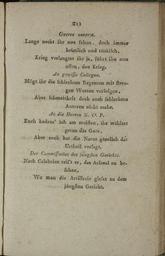 213
Guerre ouverte.
Lange neckt ihr uns schon, doch immer
heimlich und tückisch,
Krieg verlangtet ihr ja, führt ihn nun
offen, den Krieg.
An gewisse Collegen.
Mögt ihr die schlechten Regenten mit strengen
Worten verfolgen,
Aber schmeichelt doch auch schlechten
Autoren nicht mehr.
An die Herren N. O. P.
Euch bedaur' ich am meisten, ihr wähltet
gerne das Gute,
Aber euch hat die Natur gänzlich das
Urtheil versagt.
Der Commissarius des jüngsten Gerichts.
Nach Calabrien reis't er, das Arsenal zu besehen,
Wo man die Artillerie giesst zu dem
jüngsten Gericht.